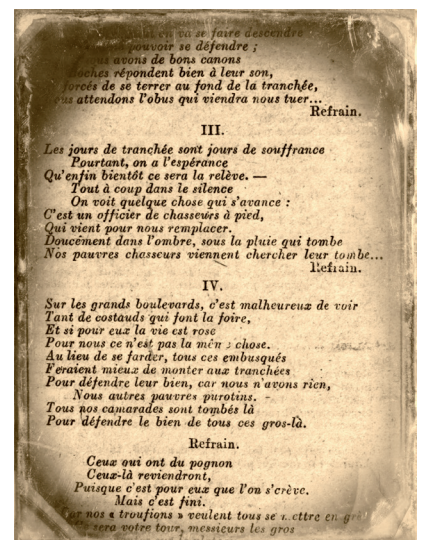 en va se faire descendre
pouvoir se défendre ;
avons de bons canons
répondent bien à leur son,
forcés de se terrer au fond de la tranchée,
attendons l'obus qui viendra nous tuer...
Refrain.
III.
Les jours de tranchée sont jours de souffrance
Pourtant, on a l'espérance
Qu'enfin bientôt ce sera la relève. —
Tout à coup dans le silence
On voit quelque chose qui s'avance :
C'est un officier de chasseurs à pied,
Qui vient pour nous remplacer.
Doucement dans l'ombre, sous la pluie qui tombe
Nos pauvres chasseurs viennent chercher leur tombe...
Refrain.
IV.
Sur les grands boulevards, c'est malheureux de voir
Tant de costauds qui font la foire,
Et si pour eux la vie est rose
Pour nous ce n'est pas la mêm chose.
Au lieu de se farder, tous ces embusqués
Feraient mieux de monter aux tranchées
Pour défendre leur bien, car nous n'avons rien,
Nous autres pauvres purotins. -
Tous nos camarades sont tombés là
Pour défendre le bien de tous ces gros-là.
Refrain.
Ceux qui ont du pognon
Ceux-là reviendront,
Puisque c'est pour eux que l'on s'crève.
Mais c'est fini.
nos « troufions » veulent tous se mettre en
sera votre tour, messieurs les gros